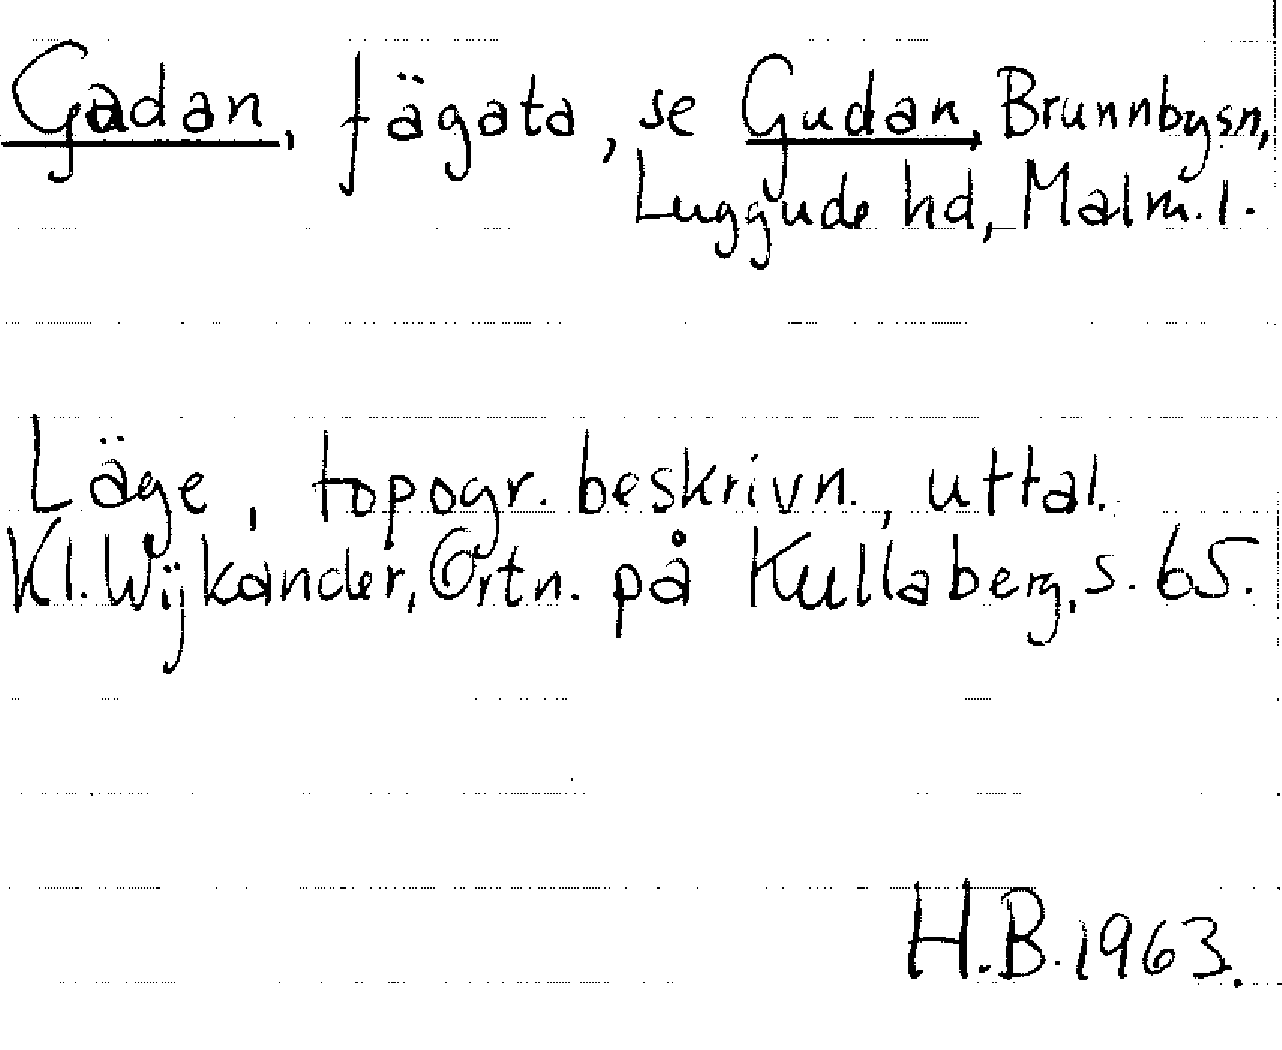 Gadan, fägata, se Gudan, Brunnbysn,
Luggude hd, Malm. l.
Läge, topogr. beskrivn., uttal.
Kl. Wijkander, Ortn. på Kullaberg, s. 65.
H.B. 1963.